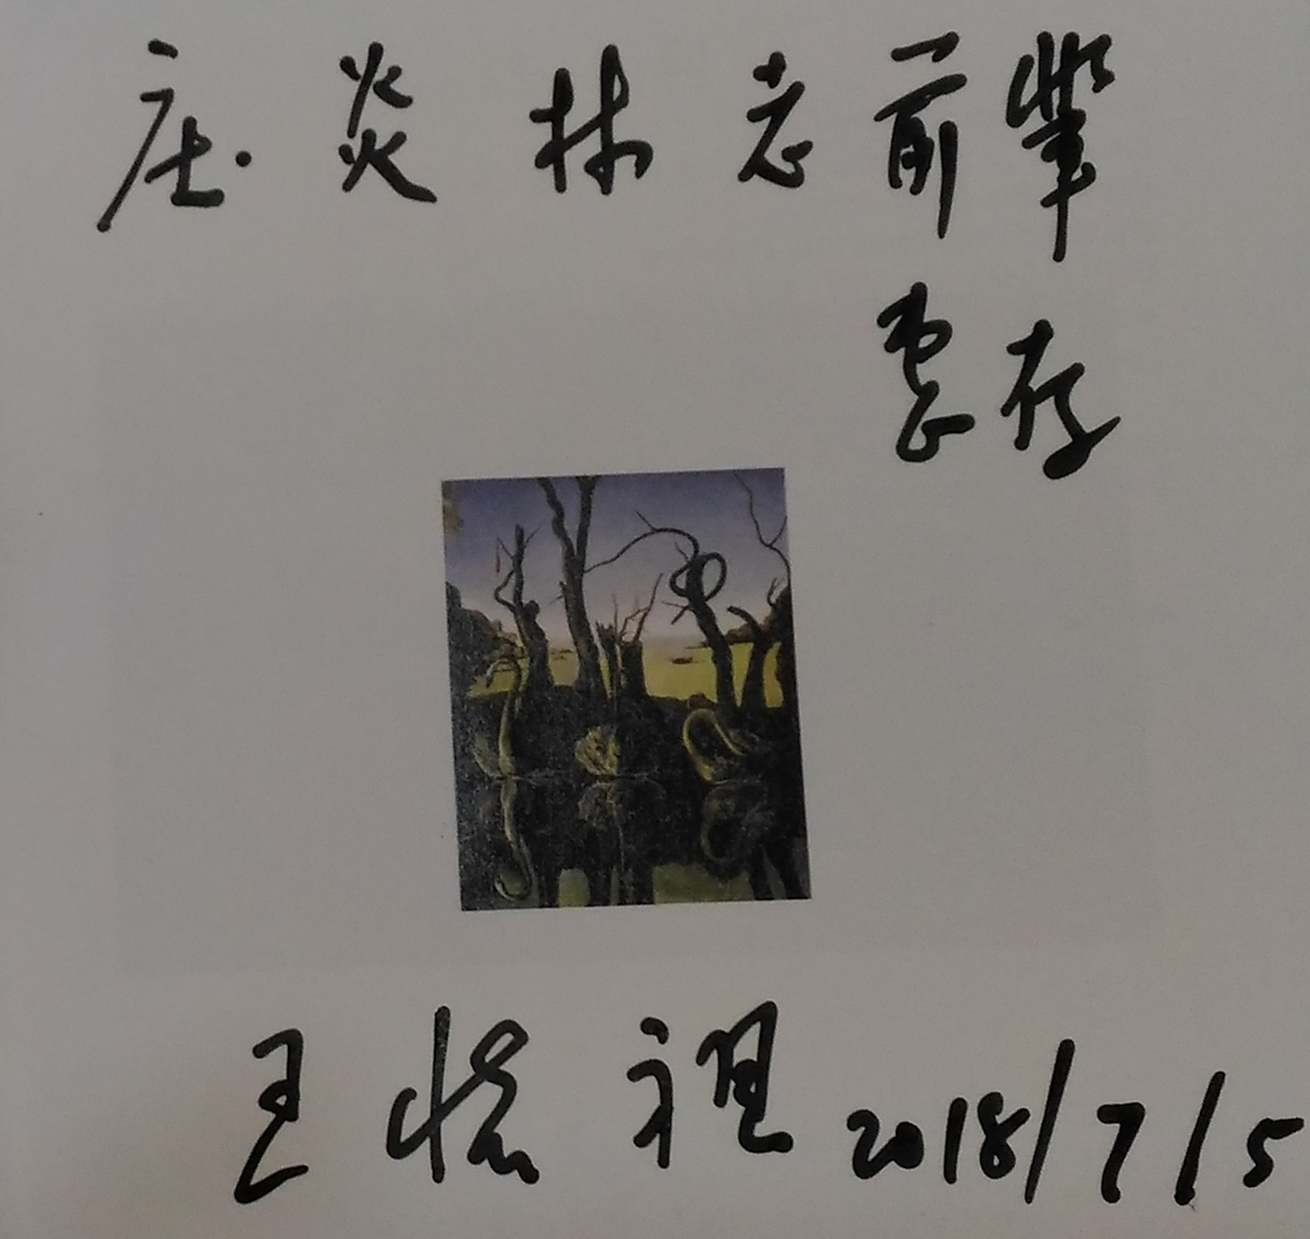 庄炎林老前辈
惠存
王怀祖 2018/7/5